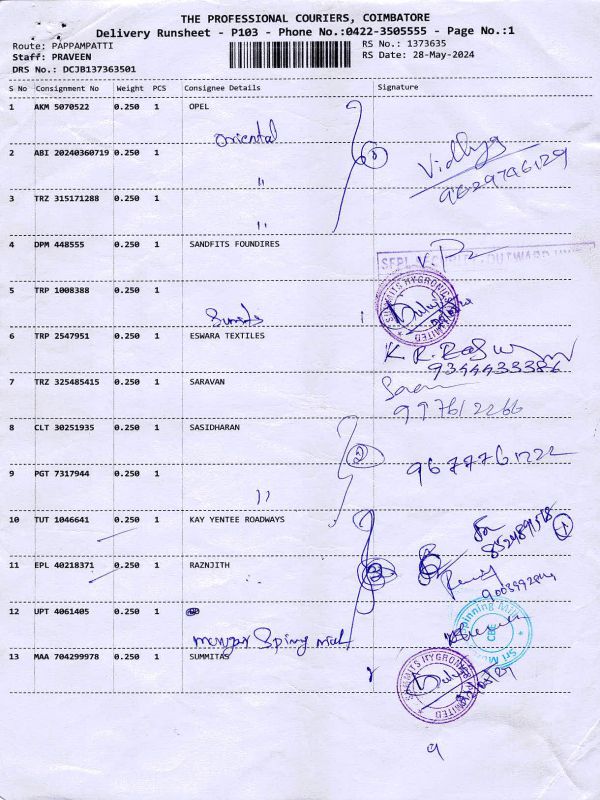 THE PROFESSIONAL COURIERS, COIMBATORE
Delivery Runsheet - P103 - Phone No.:0422-3505555 - Page No.:1
Route: PAPPAMPATTI RS No.: 1373635
Staff: PRAVEEN RS Date: 28-May-2024
DRS No.: DCJB137363501
S No Consignment No Weight PCS Consignee Details Signature
1 AKM 5070522 0.250 1 OPEL
Oriental
2 ABI 20240360719 0.250 1
"
Vidhya
9629796129
3 TRZ 315171288 0.250 1
"
4 DPM 448555 0.250 1 SANDFITS FOUNDIRES
5 TRP 1008388 0.250 1
SUMMITS HYGRONICS
6 TRP 2547951 0.250 1 ESWARA TEXTILES
9344433386
7 TRZ 325485415 0.250 1 SARAVAN
8 CLT 30251935 0.250 1 SASIDHARAN
2
9677761222
9 PGT 7317944 0.250 1
"
10 TUT 1046641 0.250 1 KAY YENTEE ROADWAYS
11 EPL 40218371 0.250 1 RAZNJITH
12 UPT 4061405 0.250 1
13 MAA 704299978 0.250 1 SUMMITAS
SUMMITS HYGRONICS
9